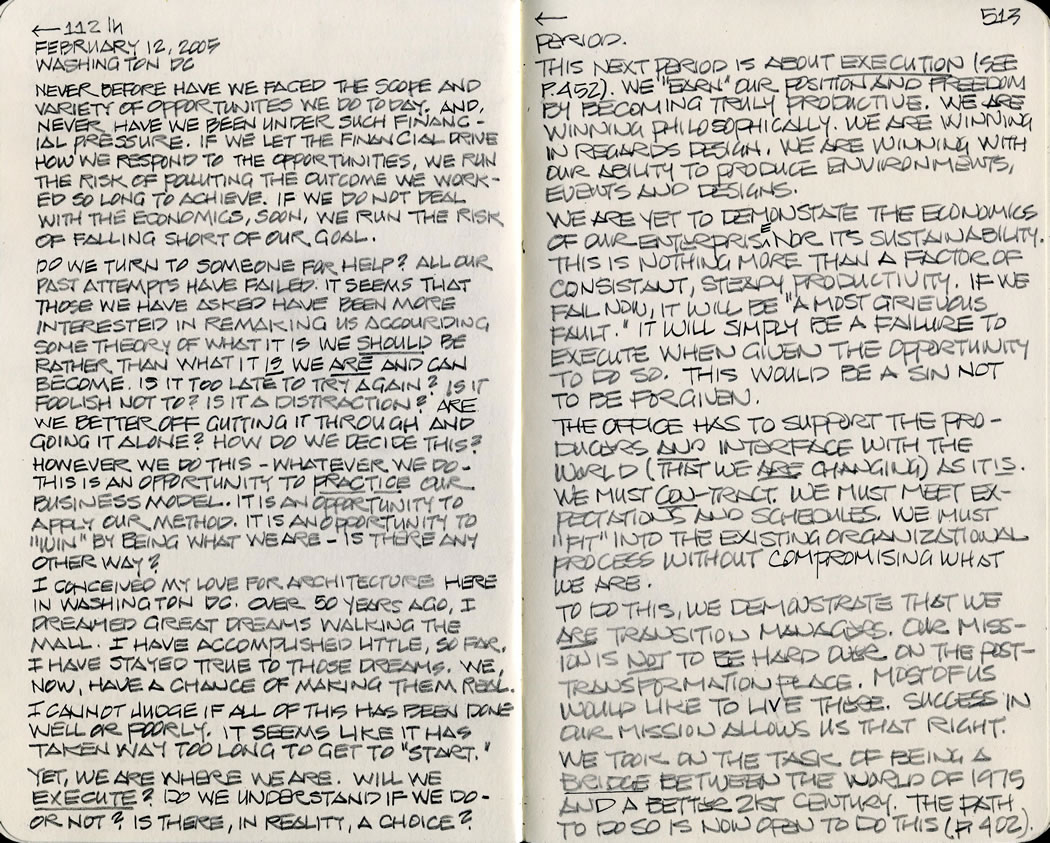 ← 112 lh
FEBRUARY 12, 2005
WASHINGTON DC
NEVER BEFORE HAVE WE FACED THE SCOPE AND
VARIETY OF OPPORTUNITES WE DO TODAY. AND,
NEVER HAVE WE BEEN UNDER SUCH FINANC-
IAL PRESSURE. IF WE LET THE FINANCIAL DRIVE
HOW WE RESPOND TO THE OPPORTUNITIES, WE RUN
THE RISK OF POLLUTING THE OUTCOME WE WORK-
ED SO LONG TO ACHIEVE. IF WE DO NOT DEAL
WITH THE ECONOMICS, SOON, WE RUN THE RISK
OF FALLING SHORT OF OUR GOAL.
DO WE TURN TO SOMEONE FOR HELP? ALL OUR
PAST ATTEMPTS HAVE FAILED. IT SEEMS THAT
THOSE WE HAVE ASKED HAVE BEEN MORE
INTERESTED IN REMAKING US ACCOURDING
SOME THEORY OF WHAT IT IS WE SHOULD BE
RATHER THAN WHAT IT IS WE ARE AND CAN
BECOME. IS IT TOO LATE TO TRY AGAIN? IS IT
FOOLISH NOT TO? IS IT A DISTRACTION? ARE
WE BETTER OFF GUTTING IT THROUGH AND
GOING IT ALONE? HOW DO WE DECIDE THIS?
HOWEVER WE DO THIS - WHATEVER WE DO -
THIS IS AN OPPORTUNITY TO PRACTICE OUR
BUSINESS MODEL. IT IS AN OPPORTUNITY TO
APPLY OUR METHOD. IT IS AN OPPORTUNITY TO
"WIN" BY BEING WHAT WE ARE - IS THERE ANY
OTHER WAY?
I CONCEIVED MY LOVE FOR ARCHITECTURE HERE
IN WASHINGTON DC. OVER 50 YEARS AGO, I
DREAMED GREAT DREAMS WALKING THE
MALL. I HAVE ACCOMPLISHED LITTLE, SO FAR.
I HAVE STAYED TRUE TO THOSE DREAMS. WE,
NOW, HAVE A CHANCE OF MAKING THEM REAL.
I CANNOT JUDGE IF ALL OF THIS HAS BEEN DONE
WELL OR POORLY. IT SEEMS LIKE IT HAS
TAKEN WAY TOO LONG TO GET TO "START."
YET, WE ARE WHERE WE ARE. WILL WE
EXECUTE? DO WE UNDERSTAND IF WE DO -
OR NOT? IS THERE, IN REALITY, A CHOICE?
← 513
PERIOD.
THIS NEXT PERIOD IS ABOUT EXECUTION (SEE
P. 452). WE "EARN" OUR POSITION AND FREEDOM
BY BECOMING TRULY PRODUCTIVE. WE ARE
WINNING PHILOSOPHICALLY. WE ARE WINNING
IN REGARDS DESIGN. WE ARE WINNING WITH
OUR ABILITY TO PRODUCE ENVIRONMENTS,
EVENTS AND DESIGNS.
WE ARE YET TO DEMONSTATE THE ECONOMICS
OF OUR ENTERPRISE NOR IT'S SUSTAINABILITY.
THIS IS NOTHING MORE THAN A FACTOR OF
CONSISTANT, STEADY PRODUCTIVITY. IF WE
FAIL NOW, IT WILL BE "A MOST GRIEVOUS
FAULT." IT WILL SIMPLY BE A FAILURE TO
EXECUTE WHEN GIVEN THE OPPORTUNITY
TO DO SO. THIS WOULD BE A SIN NOT
TO BE FORGIVEN.
THE OFFICE HAS TO SUPPORT THE PRO-
DUCERS AND INTERFACE WITH THE
WORLD (THAT WE ARE CHANGING) AS IT IS.
WE MUST CON-TRACT. WE MUST MEET EX-
PECTATIONS AND SCHEDULES. WE MUST
"FIT" INTO THE EXISTING ORGANIZATIONAL
PROCESS WITHOUT COMPROMISING WHAT
WE ARE.
TO DO THIS, WE DEMONSTRATE THAT WE
ARE TRANSITION MANAGERS. OUR MISS-
ION IS NOT TO BE HARD OVER ON THE POST-
TRANSFORMATION PLACE. MOST OF US
WOULD LIKE TO LIVE THERE. SUCCESS IN
OUR MISSION ALLOWS US THAT RIGHT.
WE TOOK ON THE TASK OF BEING A
BRIDGE BETWEEN THE WORLD OF 1975
AND A BETTER 21ST CENTURY. THE PATH
TO DO SO IS NOW OPEN TO DO THIS (P. 402).